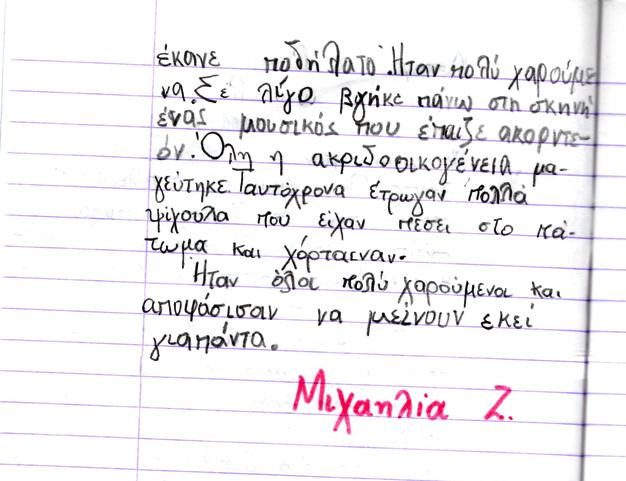 έκανε ποδήλατο. Ήταν πολύ χαρούμε
να. Σε λίγο βγήκε πάνω στη σκηνή
ένας μουσικός που έπαιζε ακορντε-
όν. Όλη η ακριδοοικογένεια μα-
γεύτηκε. Ταυτόχρονα έτρωγαν πολλά
ψίχουλα που είχαν πέσει στο πά-
τωμα και χόρταιναν.
Ήταν όλοι πολύ χαρούμενοι και
αποφάσισαν να μείνουν εκεί
γιαπάντα.
Μιχαηλία Ζ.